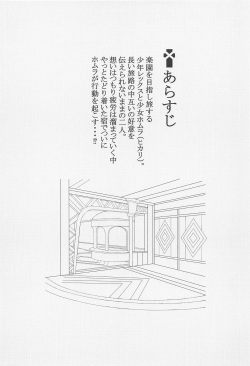 あらすじ
楽園を目指し旅する
少年レックスと少女ホムラ(ヒカリ)。
長い旅路の中互いの好意を
伝えられないままの二人。
想いはつもり疲労は溜まっていく中
やっとたどり着いた宿でついに
ホムラが行動を起こす・・・?